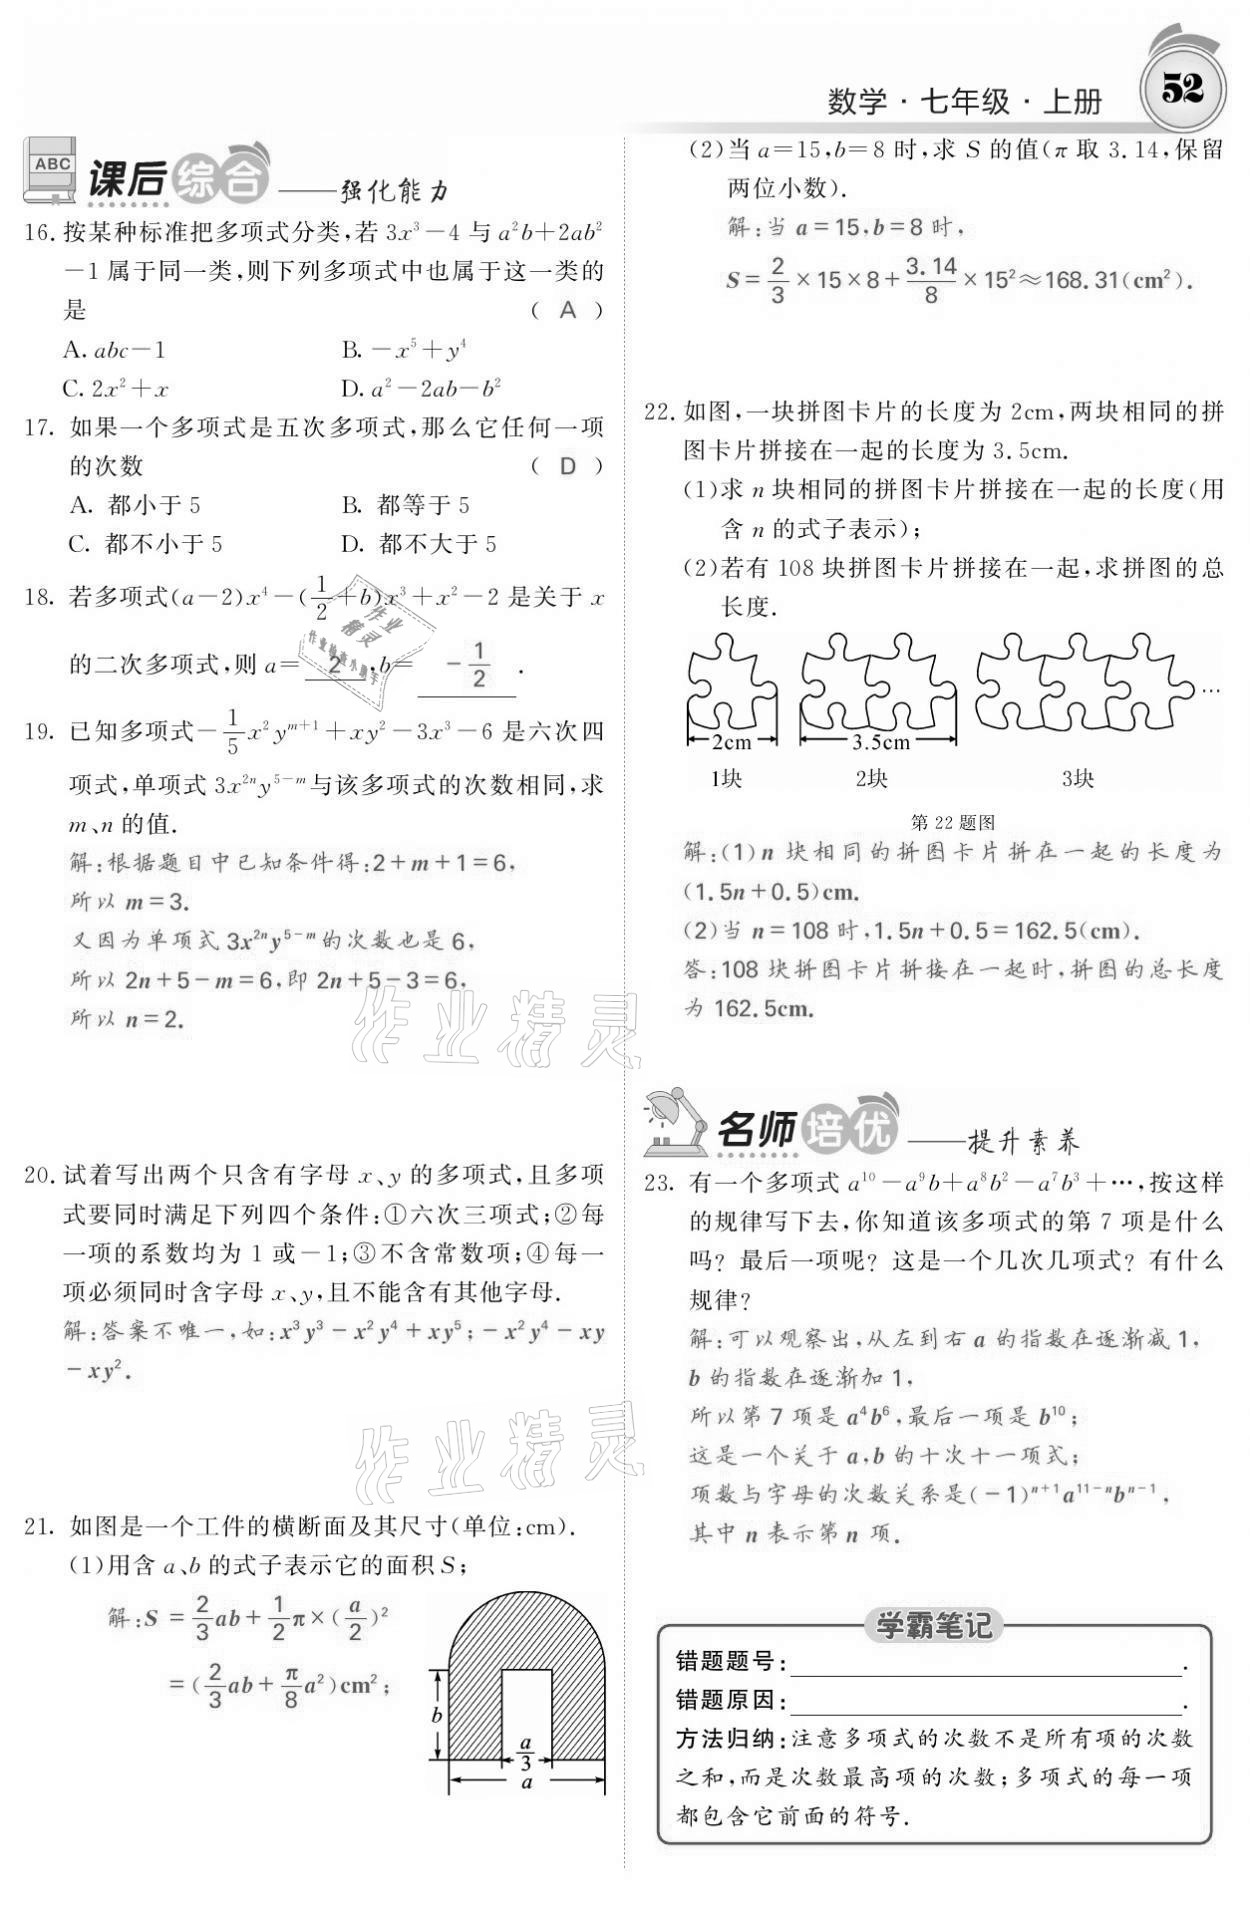 数学·七年级·上册
52
ABC
课后综合——强化能力
16.按某种标准把多项式分类,若 3x³-4 与 a²b+2ab²
-1 属于同一类,则下列多项式中也属于这一类的
是 ( A )
A. abc-1 B. -x⁵+y⁴
C. 2x²+x D. a²-2ab-b²
17. 如果一个多项式是五次多项式,那么它任何一项
的次数 ( D )
A. 都小于 5 B. 都等于 5
C. 都不小于 5 D. 都不大于 5
18. 若多项式(a-2)x⁴-(1/2+b)x³+x²-2 是关于 x
的二次多项式,则 a= 2 ,b= -1/2 .
19. 已知多项式-1/5x²y^(m+1)+xy²-3x³-6 是六次四
项式,单项式 3x^(2n)y^(5-m)与该多项式的次数相同,求
m、n 的值.
解:根据题目中已知条件得:2+m+1=6,
所以 m=3.
又因为单项式 3x^(2n)y^(5-m)的次数也是 6,
所以 2n+5-m=6,即 2n+5-3=6,
所以 n=2.
20.试着写出两个只含有字母 x、y 的多项式,且多项
式要同时满足下列四个条件:①六次三项式;②每
一项的系数均为 1 或-1;③不含常数项;④每一
项必须同时含字母 x、y,且不能含有其他字母.
解:答案不唯一,如:x³y³-x²y⁴+xy⁵;-x²y⁴-xy
-xy².
21. 如图是一个工件的横断面及其尺寸(单位:cm).
(1)用含 a、b 的式子表示它的面积 S;
解:S =2/3ab+1/2π×(a/2)²
=(2/3ab+π/8a²)cm²;
b
a/3
a
(2)当 a=15,b=8 时,求 S 的值(π 取 3.14,保留
两位小数).
解:当 a=15,b=8 时,
S=2/3×15×8+3.14/8×15²≈168.31(cm²).
22. 如图,一块拼图卡片的长度为 2cm,两块相同的拼
图卡片拼接在一起的长度为 3.5cm.
(1)求 n 块相同的拼图卡片拼接在一起的长度(用
含 n 的式子表示);
(2)若有 108 块拼图卡片拼接在一起,求拼图的总
长度.
…
2cm 3.5cm
1块 2块 3块
第 22 题图
解:(1)n 块相同的拼图卡片拼在一起的长度为
(1.5n+0.5)cm.
(2)当 n=108 时,1.5n+0.5=162.5(cm).
答:108 块拼图卡片拼接在一起时,拼图的总长度
为 162.5cm.
名师培优——提升素养
23. 有一个多项式 a¹⁰-a⁹b+a⁸b²-a⁷b³+…,按这样
的规律写下去,你知道该多项式的第 7 项是什么
吗？最后一项呢？这是一个几次几项式？有什么
规律？
解:可以观察出,从左到右 a 的指数在逐渐减 1,
b 的指数在逐渐加 1,
所以第 7 项是 a⁴b⁶,最后一项是 b¹⁰;
这是一个关于 a,b 的十次十一项式;
项数与字母的次数关系是(-1)^(n+1)a^(11-n)b^(n-1),
其中 n 表示第 n 项.
学霸笔记
错题题号: .
错题原因: .
方法归纳:注意多项式的次数不是所有项的次数
之和,而是次数最高项的次数;多项式的每一项
都包含它前面的符号.
作业精灵
作业精灵
作业
精灵
作业检查小助手